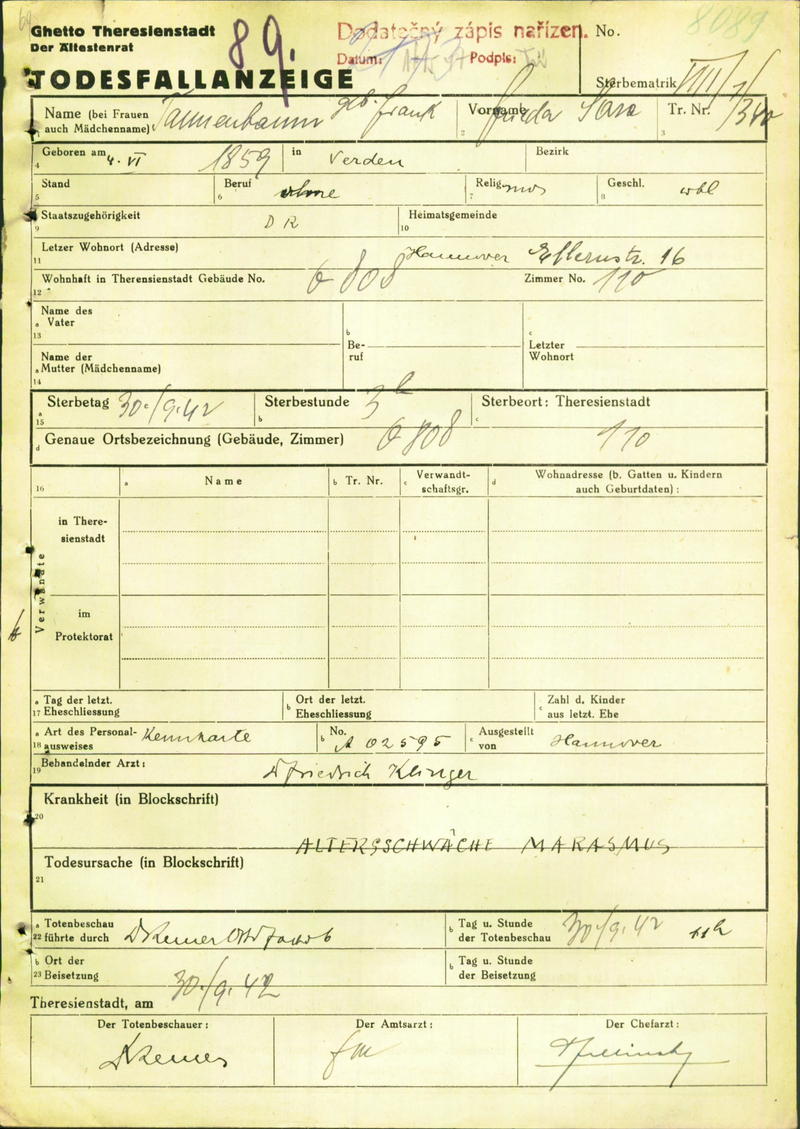 8089
Ghetto Theresienstadt
Der Ältestenrat
89.
Dodatečný zápis nařízen.
Datum: Podpis:
No.
TODESFALLANZEIGE
Sterbematrik
Name (bei Frauen auch Mädchenname) Tannenbaum geb. Frank
Vorname Sara
Tr. Nr. VIII/1/340
Geboren am 4. VI 1859 in Verden
Bezirk
Stand
Beruf ohne
Relig. mos
Geschl. wbl
Staatszugehörigkeit D R
Heimatsgemeinde
Letzer Wohnort (Adresse) Hannover Ellernstr. 16
Wohnhaft in Therensienstadt Gebäude No. 808
Zimmer No. 110
Name des Vater
Be-ruf
Letzter Wohnort
Name der Mutter (Mädchenname)
Sterbetag 30./9.42
Sterbestunde 3 h
Sterbeort: Theresienstadt
Genaue Ortsbezeichnung (Gebäude, Zimmer) 808 110
Name
Tr. Nr.
Verwandt-schaftsgr.
Wohnadresse (b. Gatten u. Kindern auch Geburtdaten) :
Verwandte
in There-sienstadt
im Protektorat
Tag der letzt. Eheschliessung
Ort der letzt. Eheschliessung
Zahl d. Kinder aus letzt. Ehe
Art des Personal-ausweises Kennkarte
No. A 02595
Ausgestellt von Hannover
Behandelnder Arzt: Dr Friedrich Klinger
Krankheit (in Blockschrift)
ALTERSSCHWÄCHE MARASMUS
Todesursache (in Blockschrift)
Totenbeschau führte durch
Tag u. Stunde der Totenbeschau 30./9.42 11h
Ort der Beisetzung
Tag u. Stunde der Beisetzung
Theresienstadt, am 30./9.42
Der Totenbeschauer :
Der Amtsarzt :
Der Chefarzt :